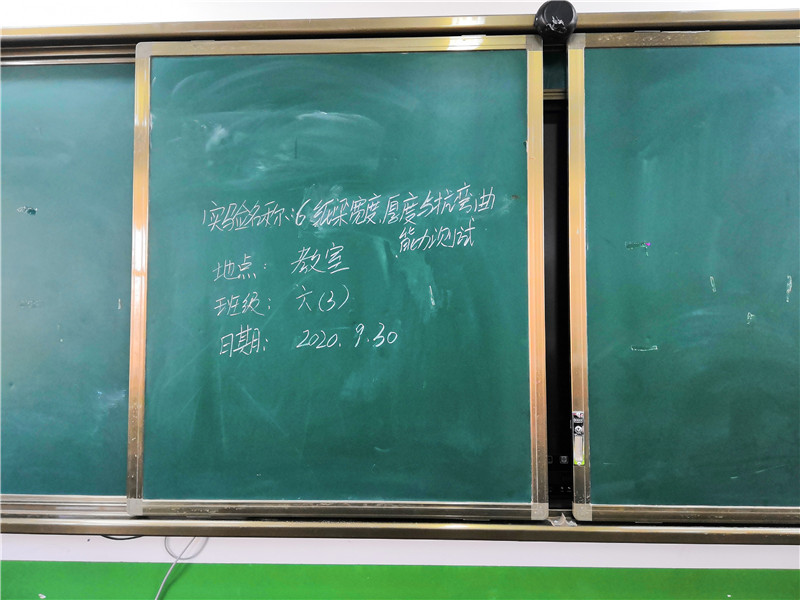 实验名称:6 纸梁宽度、厚度与抗弯曲
能力测试
地点: 教室
班级: 六(3)
日期: 2020.9.30